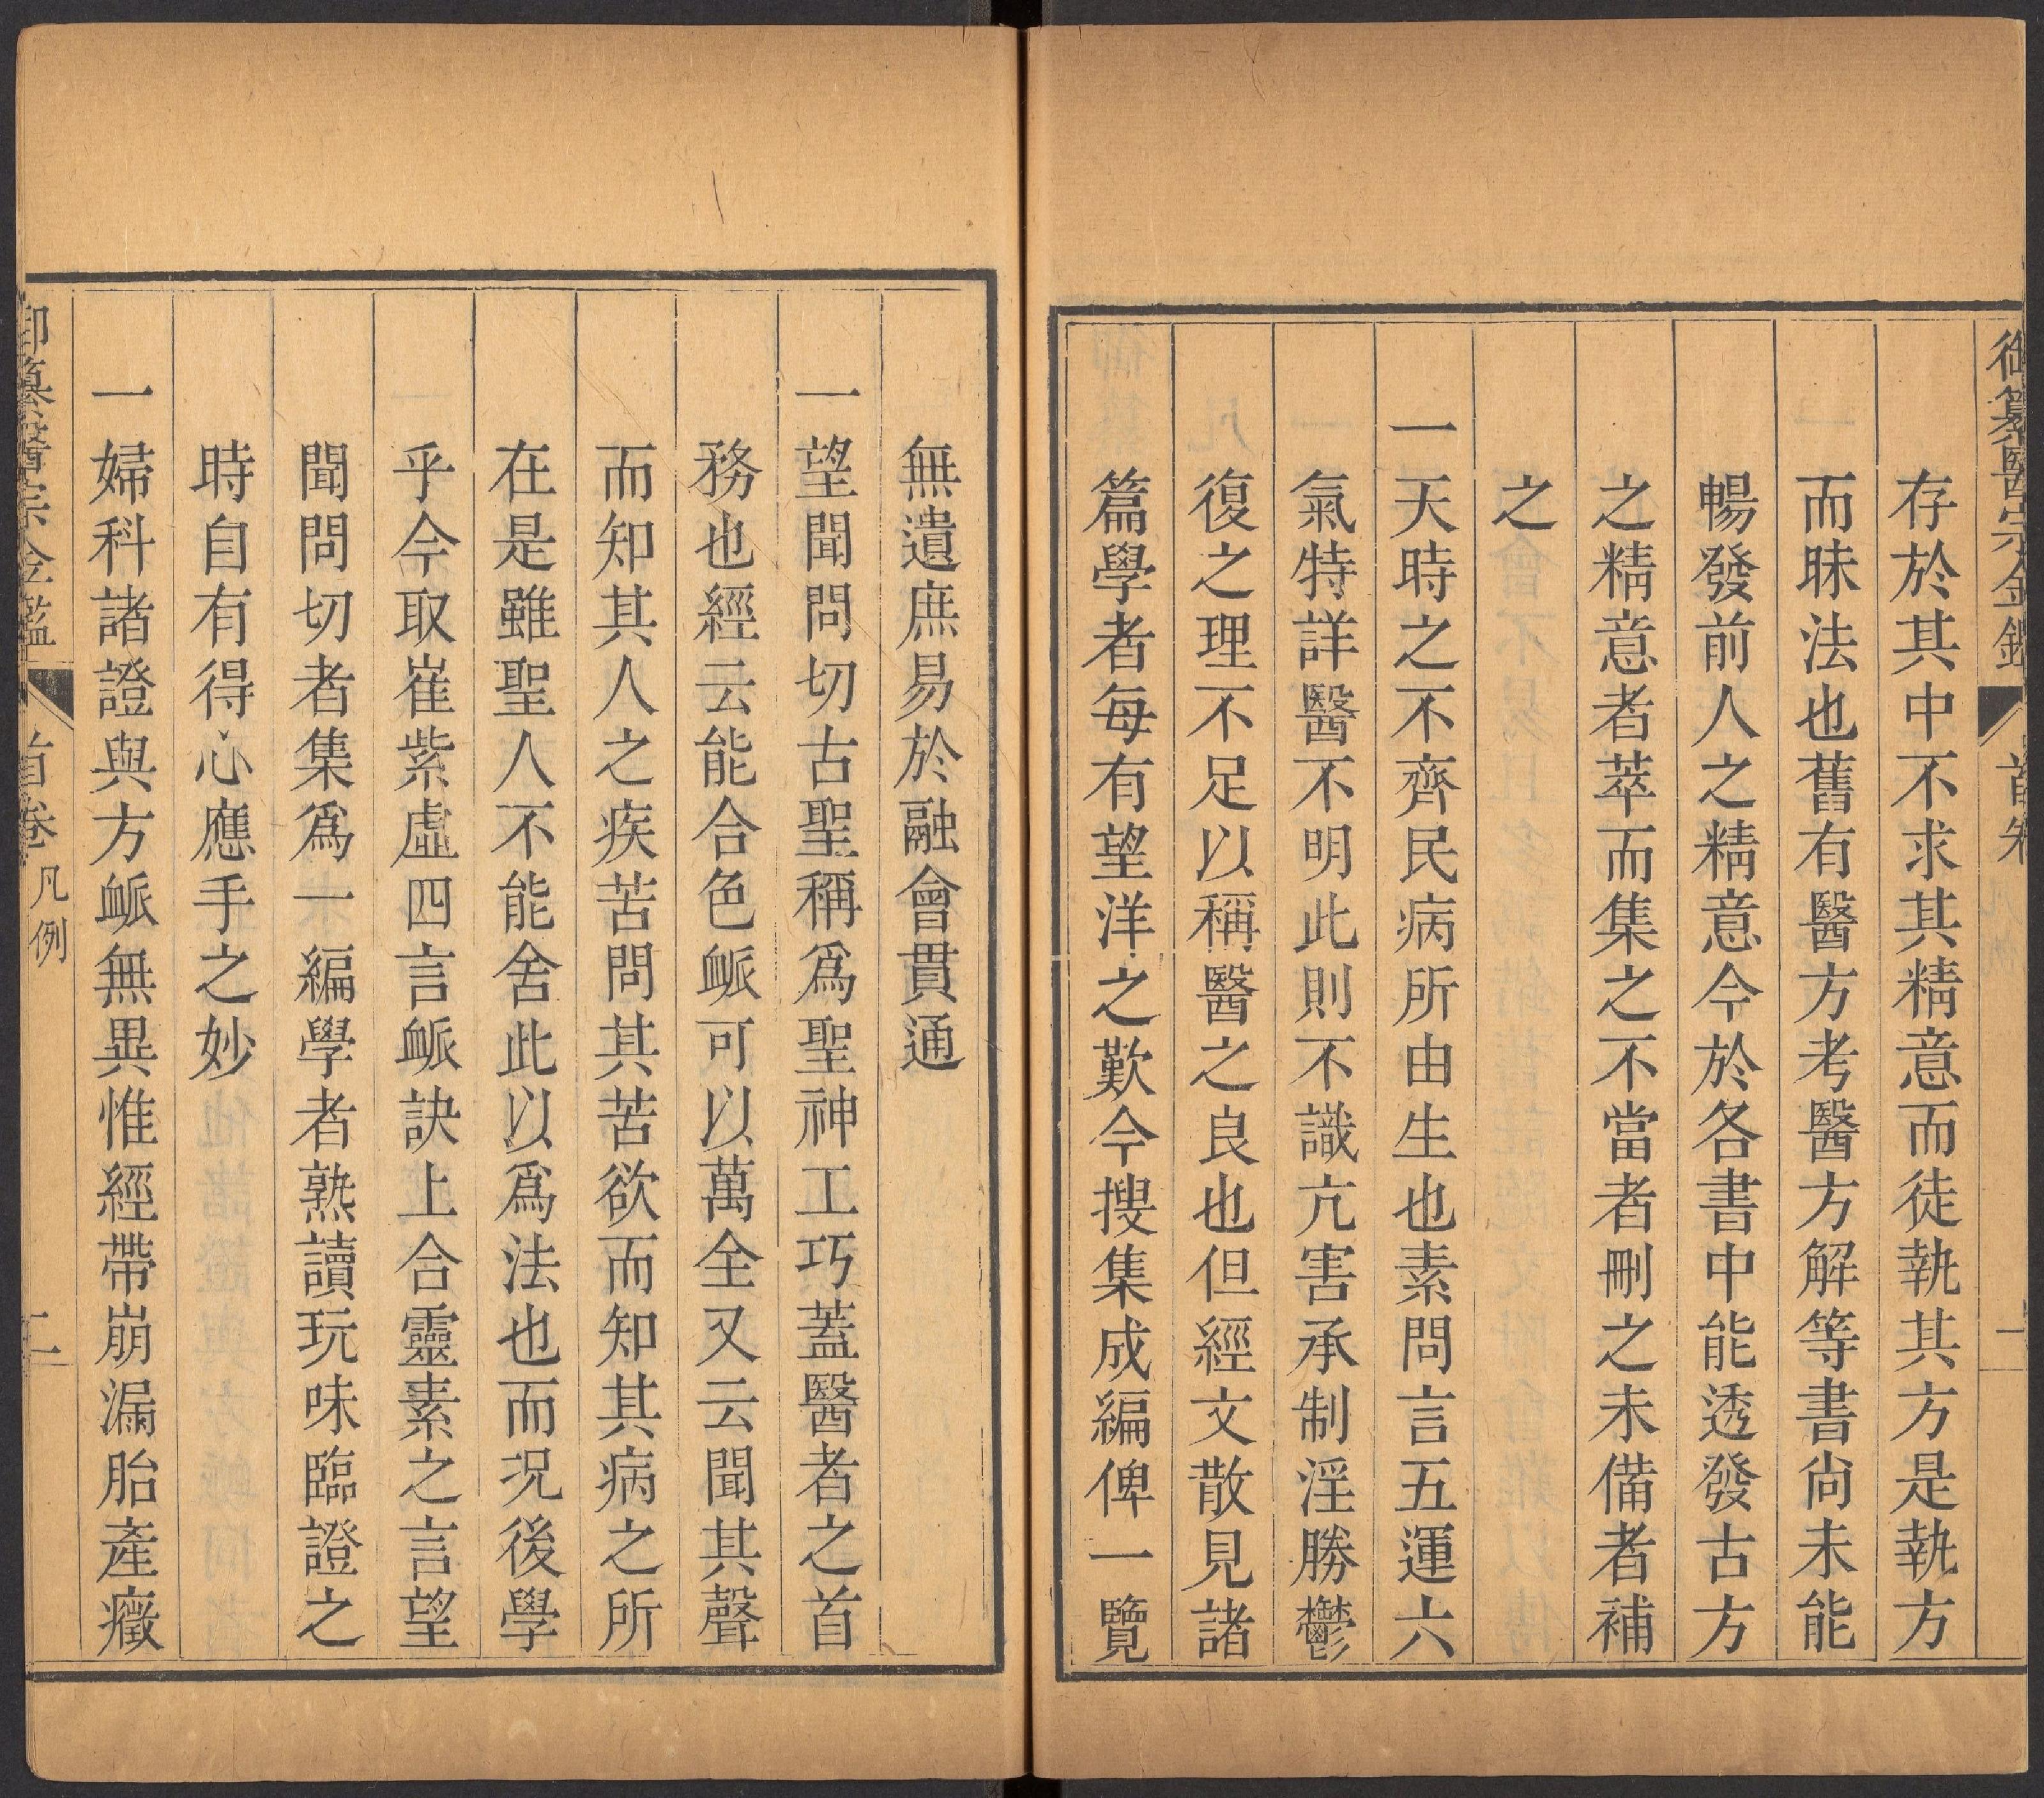 御纂醫宗金鑑 首卷 一
存於其中不求其精意而徒執其方是執方
而昧法也舊有醫方考醫方解等書尚未能
暢發前人之精意今於各書中能透發古方
之精意者萃而集之不當者刪之未備者補
之
一天時之不齊民病所由生也素問言五運六
氣特詳醫不明此則不識亢害承制淫勝鬱
復之理不足以稱醫之良也但經文散見諸
篇學者每有望洋之歎今搜集成編俾一覽
無遺庶易於融會貫通
一望聞問切古聖稱爲聖神工巧蓋醫者之首
務也經云能合色衇可以萬全又云聞其聲
而知其人之疾苦問其苦欲而知其病之所
在是雖聖人不能舍此以爲法也而况後學
乎今取崔紫虛四言衇訣上合靈素之言望
聞問切者集爲一編學者熟讀玩味臨證之
時自有得心應手之妙
一婦科諸證與方衇無異惟經帶崩漏胎產癥
御纂醫宗金鑑 首卷 凡例 二